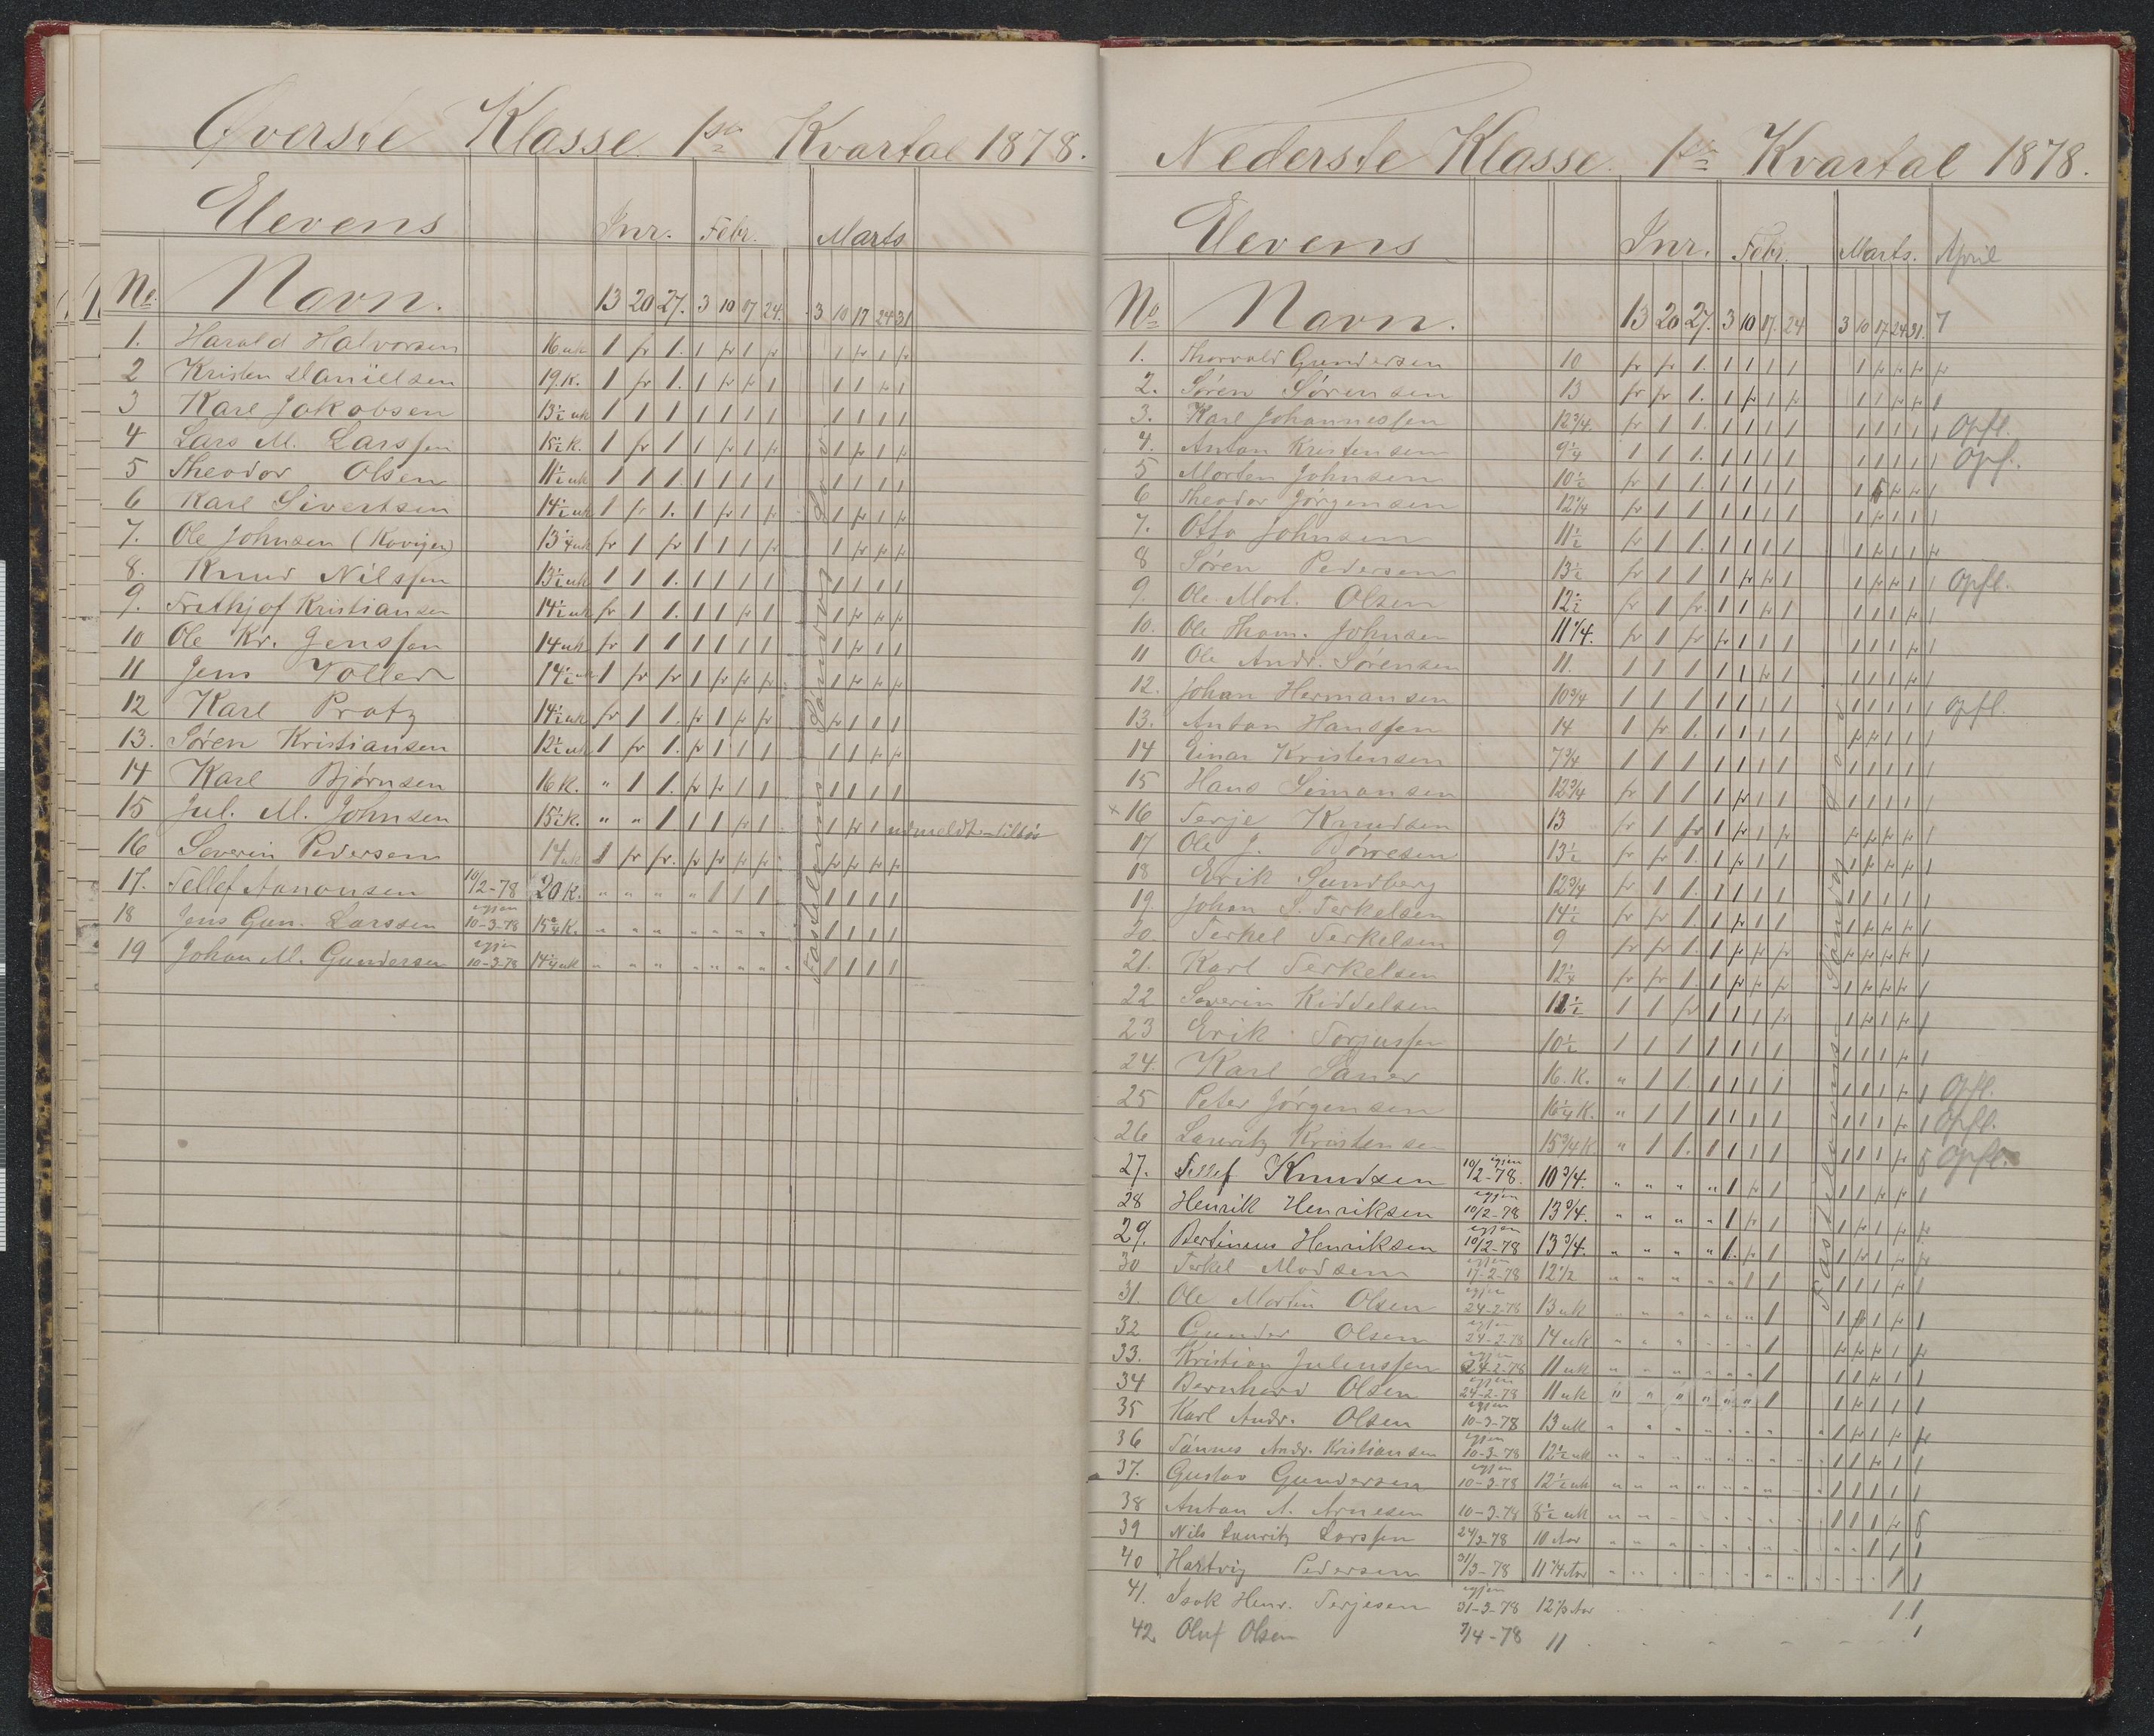 Øverste Klasse 1ste Kvartal 1878.
Elevens Jnr. Febr. Marts
No. Navn. 13 20 27. 3 10 17 24. 3 10 17 24 31
1. Harald Halvorsen 16 uk 1 fr 1. 1 fr 1 fr 1 fr 1 fr
2 Kristen Danielsen 19. K. 1 fr 1. 1 fr fr 1 1 1 fr 1
3 Karl Jakobsen 13½ uk 1 1 1 1 1 1 1 1 1 1 1
4 Lars M. Larssen 15½ K. 1 fr 1 1 fr 1 fr 1 fr 1 fr
5 Theodor Olsen 11½ uk 1 1 1 1 1 1 1 1 1 1 1
6 Karl Sivertsen 14½ uk 1 fr 1. 1 fr 1 fr 1 fr 1 fr
7. Ole Johnsen (Kovigen) 13¼ uk fr 1 fr 1 1 1 fr 1 fr fr fr
8. Knud Nilssen 13½ uk 1 1 1. 1 1 1 1 1 1 1 1
9. Frithjof Kristiansen 14½ uk fr 1 1. 1 1 fr 1 1 fr fr fr
10 Ole Kr. Jenssen 14 uk fr 1 1 1 1 1 1 1 fr 1 1
11 Jens Voller 14½ uk 1 fr fr 1 fr fr fr 1 fr fr fr
12 Karl Pratz 14½ uk fr 1 1. fr 1 fr fr fr 1 1 1
13. Søren Kristiansen 12½ uk 1 fr 1. fr 1 1 1 1 1 fr fr
14 Karl Bjørnsen 16 K. " 1 1. fr fr 1 1 1 1 1 1
15 Jul. M. Johnsen 15½ K. " " 1 1 1 fr 1 1 fr 1 udmeldt
16 Severin Pedersen 14 uk 1 fr fr. fr fr fr fr fr fr fr fr
17. Tellef Aanonsen 10/2-78 20 K. " " " " 1 1 1 1 1 1 1
18 Jens Gun. Larssen igjen 10-3-78 15¾ K. " " " " " " " 1 1 1 1
19 Johan M. Gundersen igjen 10-3-78 14¼ uk " " " " " " " 1 1 1 1
Fastelavns Søndag
Nederste Klasse. 1ste Kvartal 1878.
Elevens Jnr. Febr. Marts. April
No Navn. 13 20 27. 3 10 17. 24 3 10 17 24 31. 7
1. Thorvald Gundersen 10 fr fr 1. 1 1 1 1 1 fr fr fr fr
2. Søren Sørensen 13 fr fr 1. 1 fr 1 fr 1 1 fr fr 1
3. Karl Johannessen 12¾ fr 1 1. 1 1 1 1 1 1 1 1 1 opfl.
4. Anton Kristensen 9¼ 1 1 1. 1 1 1 1 1 1 1 1 1 opf.
5 Morten Johnsen 10½ fr 1 1. 1 1 1 1 1 fr fr 1
6 Theodor Jørgensen 12¼ fr 1 1 1 1 1 1 1 fr 1 1 1
7. Otto Johnsen 11½ fr 1 1. 1 1 1 1 1 fr 1 1 fr
8 Søren Pedersen 13½ fr 1 1 1 fr fr 1 1 fr fr 1 1 opfl.
9. Ole Mort. Olsen 12½ fr 1 fr. 1 1 fr 1 1 1 1 fr 1
10. Ole Thom. Johnsen 11¼. fr 1 fr fr 1 1 1 1 1 1 fr 1
11 Ole Andr. Sørensen 11. 1 1 1 1 1 fr 1 1 1 1 fr 1
12. Johan Hermansen 10¾ 1 1 1 1 1 1 1 1 1 1 1 1 opfl.
13. Anton Hanssen 14 1 fr 1. 1 1 1 1 fr fr 1 1 1
14 Einar Kristensen 7¾ 1 1 1 1 1 1 1 1 1 1 1 1
15 Hans Simonsen 12¾ fr 1 1 1 fr 1 1 1 1 1 1 1
× 16 Terje Knudsen 13 fr 1 fr 1 fr 1 fr fr fr fr fr 1
17 Ole J. Børresen 13½ fr fr 1. 1 fr 1 1 1 fr fr fr 1
18 Erik Sundberg 12¾ fr 1 1 1 1 1 1 1 1 1 1 1
19. Johan S. Terkelsen 14½ fr fr 1 1 fr 1 1 1 fr fr fr 1
20. Terkel Terkelsen 9 fr fr 1. 1 fr fr fr fr fr fr fr 1
21. Karl Terkelsen 12¼ fr fr 1 1 fr fr fr 1 fr fr fr 1
22 Severin Kiddelsen 11½ 1 1 fr 1 1 1 fr 1 fr 1 fr 1
23 Erik Torjussen 10½ 1 1 1 1 1 1 1 1 1 1 fr 1
24. Karl Saner 16. K. " 1 1. 1 1 1 1 1 1 1 fr 1 opfl.
25 Peter Jørgensen 16¼ K. " 1 1 1 1 1 1 1 1 1 fr 1 opfl.
26 Lauritz Kristensen 15¾ K " 1 1. 1 1 1 1 1 1 1 fr opfl.
27. Tellef Knudsen igjen 10/2-78. 10¾. " " " " 1 fr 1 1 1 fr fr 1
28 Henrik Henriksen igjen 10/2-78 13¾. " " " " 1 fr 1 1 fr 1 fr fr
29. Bertinius Henriksen igjen 10/2-78 13¾. " " " " 1. fr 1 1 fr 1 fr fr
30 Terkel Madsen igjen 17-2-78 12½ " " " " " 1 1 1 1 1 fr 1
31. Ole Martin Olsen igjen 24-2-78 13 uk " " " " " " 1 1 fr 1 fr 1
32 Gunder Olsen igjen 24-2-78 14 uk " " " " " " 1 fr fr fr 1 fr
33. Kristian Juliussen igjen 24-2-78 11 uk " " " " " " 1 1 1 fr 1 1
34 Bernhard Olsen igjen 24-2-78 11 uk " " " " " " 1 1 fr 1 1 1
35 Karl Andr. Olsen igjen 10-3-78 13 uk " " " " " " " " 1 fr 1 fr fr
36 Tønnes Andr. Kristiansen igjen 10-3-78 12½ uk " " " " " " " " 1 1 fr 1 1
37. Gustav Gundersen igjen 10-3-78 12½ uk " " " " " " " " 1 1 1 1 1
38 Anton A. Arnesen 10-3-78 8½ uk " " " " " " " " 1 1 1 fr
39 Nils Lauritz Larssen 24/3-78 10 Aar " " " " " " " " " " 1 1 1
40 Hartvig Pedersen 31/3-78 11¼ Aar " " " " " " " " " " " 1 1
41. Isak Henr. Terjesen igjen 31-3-78 12½ Aar 1 1
42 Oluf Olsen 7/4-78 11 1
Fastelavns Søndag